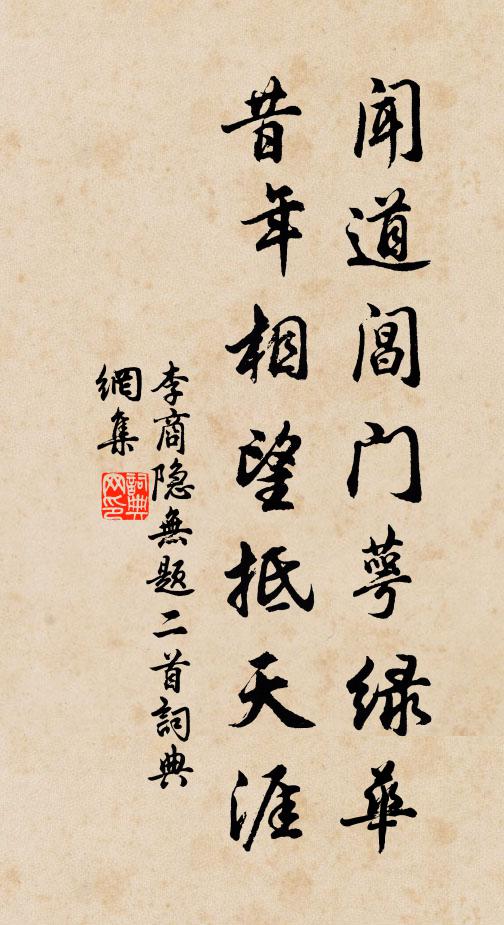 闻道阊门萼绿华
昔年相望抵天涯
李商隐無题二首詞典
網集
詞典网印